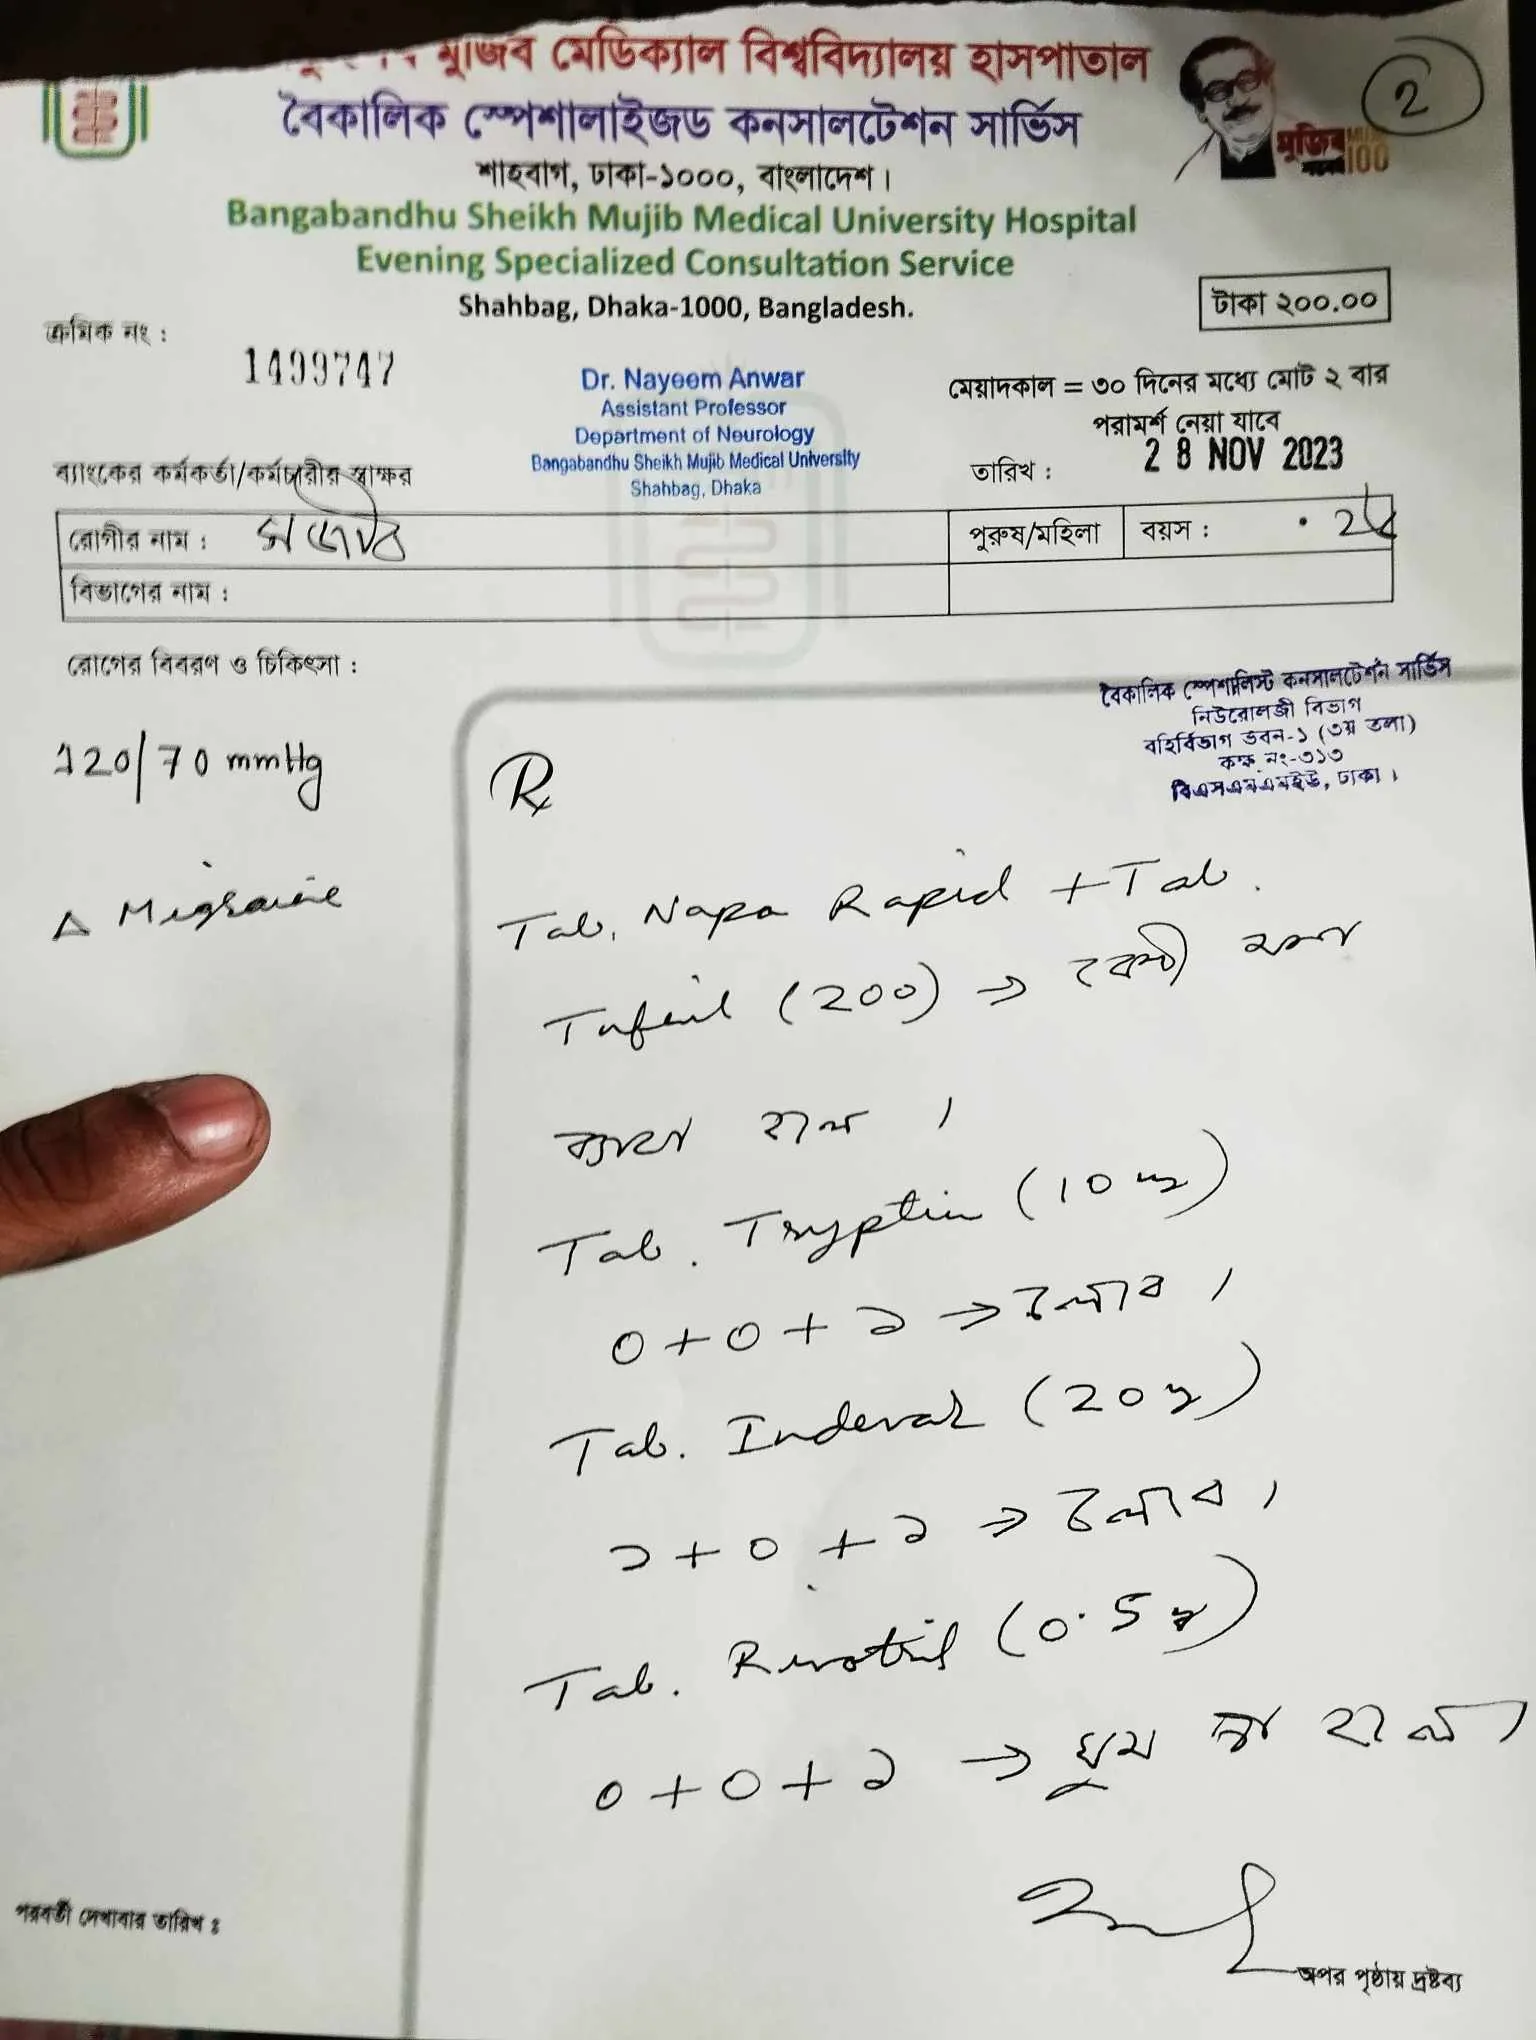 মুজিব মেডিক্যাল বিশ্ববিদ্যালয় হাসপাতাল
2
বৈকালিক স্পেশালাইজড কনসালটেশন সার্ভিস
মুজিব 100
শাহবাগ, ঢাকা-১০০০, বাংলাদেশ।
Bangabandhu Sheikh Mujib Medical University Hospital
Evening Specialized Consultation Service
Shahbag, Dhaka-1000, Bangladesh.
টাকা ২০০.০০
ক্রমিক নং :
1499747
Dr. Nayeem Anwar
Assistant Professor
Department of Neurology
Bangabandhu Sheikh Mujib Medical University
Shahbag, Dhaka
মেয়াদকাল = ৩০ দিনের মধ্যে মোট ২ বার
পরামর্শ নেয়া যাবে
ব্যাংকের কর্মকর্তা/কর্মচারীর স্বাক্ষর
তারিখ : 28 NOV 2023
রোগীর নাম :
পুরুষ/মহিলা
বয়স :
বিভাগের নাম :
রোগের বিবরণ ও চিকিৎসা :
বৈকালিক স্পেশালিস্ট কনসালটেশন সার্ভিস
নিউরোলজী বিভাগ
বহির্বিভাগ ভবন-১ (৩য় তলা)
কক্ষ নং-৩১৩
বিএসএমএমইউ, ঢাকা।
120/70 mmHg
Δ Migraine
Rx
Tab. Napa Rapid + Tab.
Tufnil (200) → বেশী মাথা
ব্যাথা হলে।
Tab. Tryptin (10 mg)
০+০+১ → চলবে।
Tab. Indever (20 mg)
১+০+১ → চলবে।
Tab. Rivotril (0.5 mg)
০+০+১ → ঘুম না হলে।
পরবর্তী দেখাবার তারিখ ঃ
অপর পৃষ্ঠায় দ্রষ্টব্য